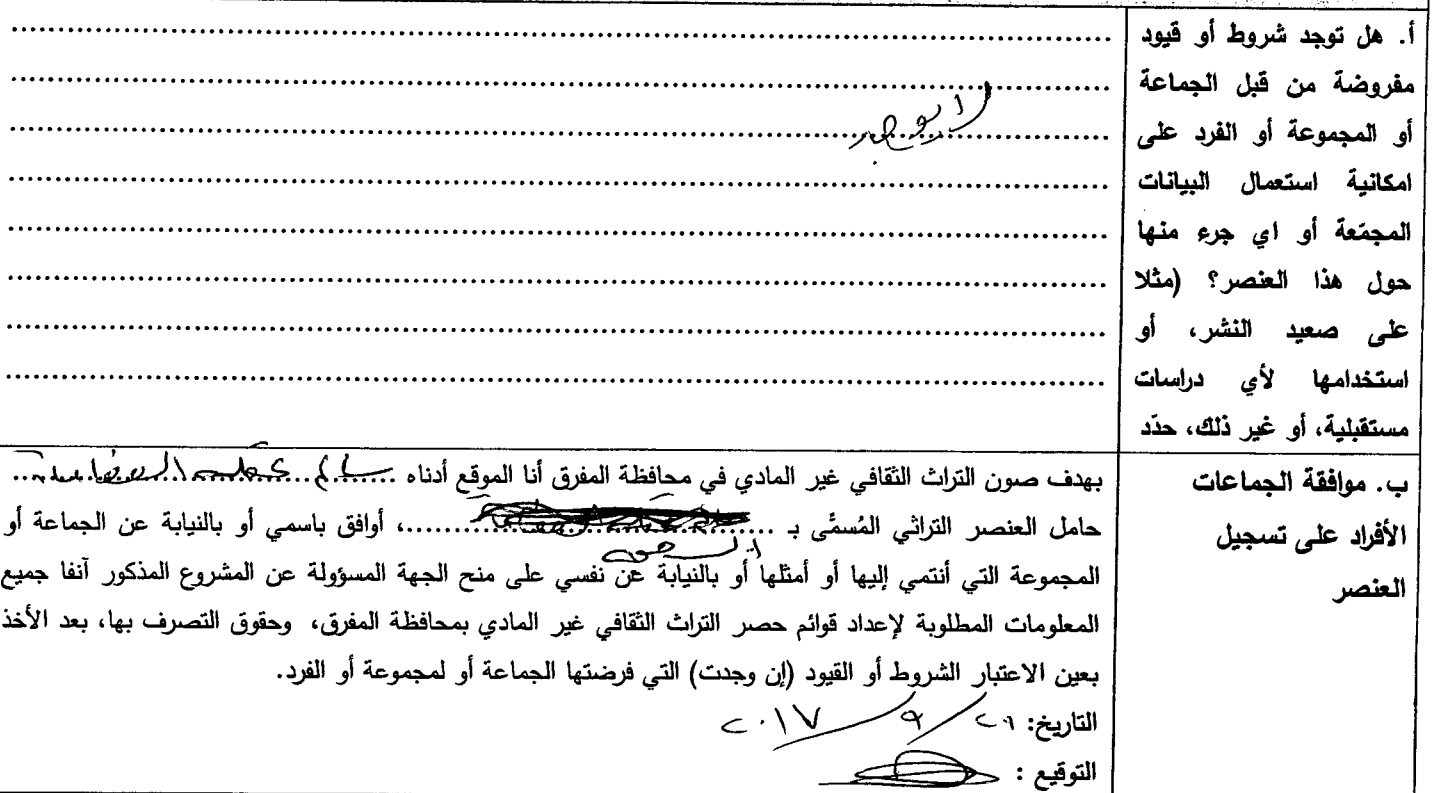 أ. هل توجد شروط أو قيود
مفروضة من قبل الجماعة
أو المجموعة أو الفرد على
امكانية استعمال البيانات
المجمّعة أو اي جرء منها
حول هذا العنصر؟ (مثلا
على صعيد النشر، أو
استخدامها لأي دراسات
مستقبلية، أو غير ذلك، حدّد
لا يوجد
ب. موافقة الجماعات
الأفراد على تسجيل
العنصر
بهدف صون التراث الثقافي غير المادي في محافظة المفرق أنا الموقع أدناه
حامل العنصر التراثي المُسمَّى بـ ، أوافق باسمي أو بالنيابة عن الجماعة أو
المجموعة التي أنتمي إليها أو أمثلها أو بالنيابة عن نفسي على منح الجهة المسؤولة عن المشروع المذكور آنفا جميع
المعلومات المطلوبة لإعداد قوائم حصر التراث الثقافي غير المادي بمحافظة المفرق، وحقوق التصرف بها، بعد الأخذ
بعين الاعتبار الشروط أو القيود (إن وجدت) التي فرضتها الجماعة أو لمجموعة أو الفرد.
التاريخ: ٢٦ / ٩ / ٢٠١٧
التوقيع :